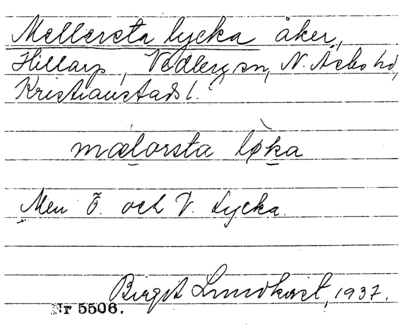 Mellersta lycka åker,
Hillarp, Vedby sn, N. Åsbo hd,
Kristianstads l.
mælorsta løka
Men Ö. och V. Lycka.
Birgit Lundkvist, 1937.
Nr 5506.